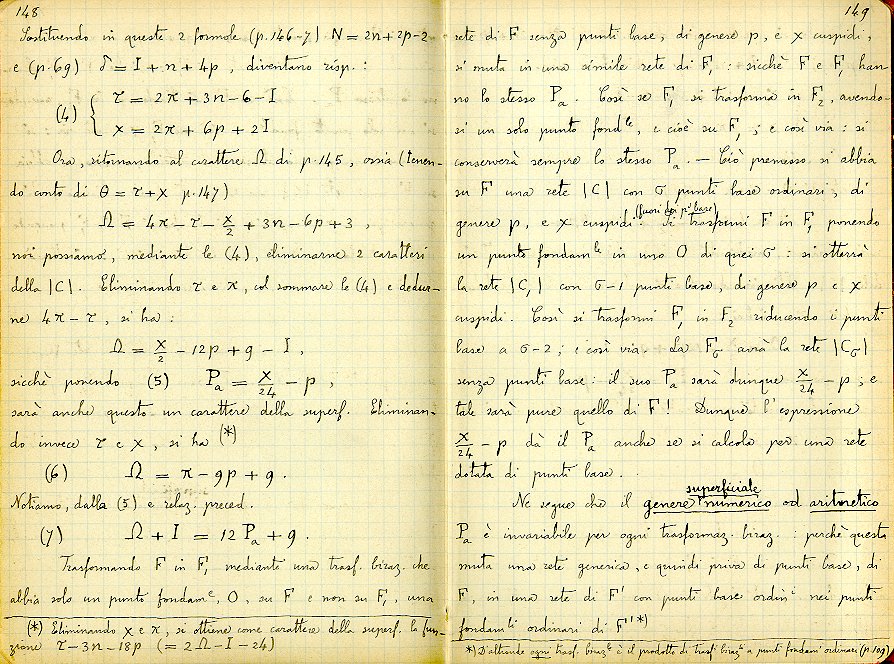 148
Sostituendo in queste 2 formole (p. 146-7) N = 2n + 2p - 2
e (p. 69) δ = I + n + 4p, diventano risp.:
(4) { τ = 2π + 3n - 6 - I
χ = 2π + 6p + 2I
Ora, ritornando al carattere Ω di p. 145, ossia (tenen-
do conto di θ = τ + χ p. 147)
Ω = 4π - τ - χ/2 + 3n - 6p + 3,
noi possiamo, mediante le (4), eliminarne 2 caratteri
della |C|. Eliminando τ e π, col sommare le (4) e dedur-
ne 4π - τ, si ha:
Ω = χ/2 - 12p + 9 - I,
sicchè ponendo (5) Pa = χ/24 - p,
sarà anche questo un carattere della superf. Eliminan-
do invece τ e χ, si ha (*)
(6) Ω = π - 9p + 9.
Notiamo, dalla (5) e relaz. preced.
(7) Ω + I = 12 Pa + 9.
Trasformando F in F1 mediante una trasf. biraz. che
abbia solo un punto fondamᵉ, O, su F e non su F1, una
(*) Eliminando χ e π, si ottiene come carattere della superf. la fun-
zione τ - 3n - 18p (= 2Ω - I - 24)
149
rete di F senza punti base, di genere p, e χ cuspidi,
si muta in una simile rete di F1: sicchè F e F1 han-
no lo stesso Pa. Così se F1 si trasforma in F2, avendo-
si un solo punto fondˡᵉ, e cioè su F1; e così via: si
conserverà sempre lo stesso Pa. — Ciò premesso si abbia
su F una rete |C| con σ punti base ordinari, di
genere p, e χ cuspidi (fuori dei pⁱ base). Si trasformi F in F1 ponendo
un punto fondamˡᵉ in uno O di quei σ: si otterrà
la rete |C1| con σ-1 punti base, di genere p e χ
cuspidi. Così si trasformi F1 in F2 riducendo i punti
base a σ-2; e così via. La Fσ avrà la rete |Cσ|
senza punti base: il suo Pa sarà dunque χ/24 - p; e
tale sarà pure quello di F! Dunque l'espressione
χ/24 - p dà il Pa anche se si calcola per una rete
dotata di punti base.
Ne segue che il genere superficiale numerico od aritmetico
Pa è invariabile per ogni trasformaz. biraz.: perchè questa
muta una rete generica, e quindi priva di punti base, di
F, in una rete di F' con punti base ordinⁱ nei punti
fondamˡⁱ ordinari di F' *)
*) D'altronde ogni trasf. birazˡᵉ è il prodotto di trasfⁱ birazˡⁱ a punti fondamⁱ ordinari (p. 109)